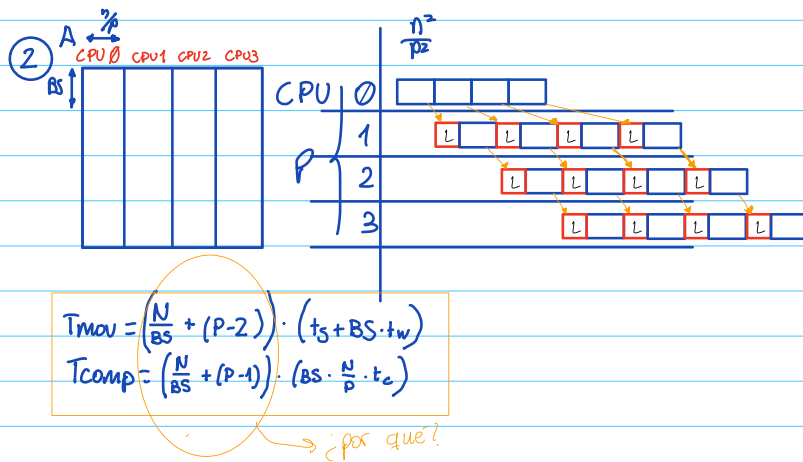 2
A n/p
CPU0 CPU1 CPU2 CPU3
BS
n²/p²
CPU 0
1 L L L L
P
2 L L L L
3 L L L L
Tmov = (N/BS + (P-2)) · (ts + BS · tw)
Tcomp = (N/BS + (P-1)) · (BS · N/P · tc)
¿por qué?